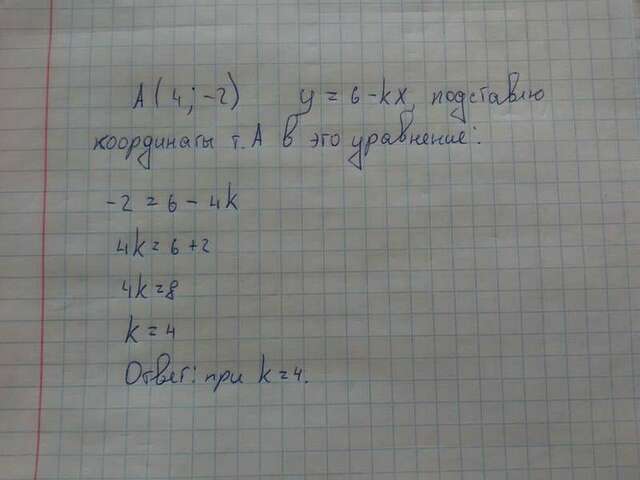 A(4; -2) y = 6 - kx, подставлю
координаты т. А в это уравнение:
-2 = 6 - 4k
4k = 6 + 2
4k = 8
k = 4
Ответ: при k = 4.